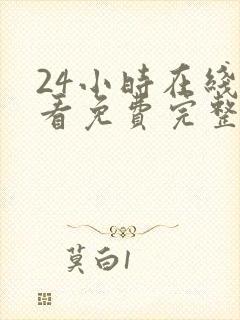 24小時在綫
看免費完整
莫白1